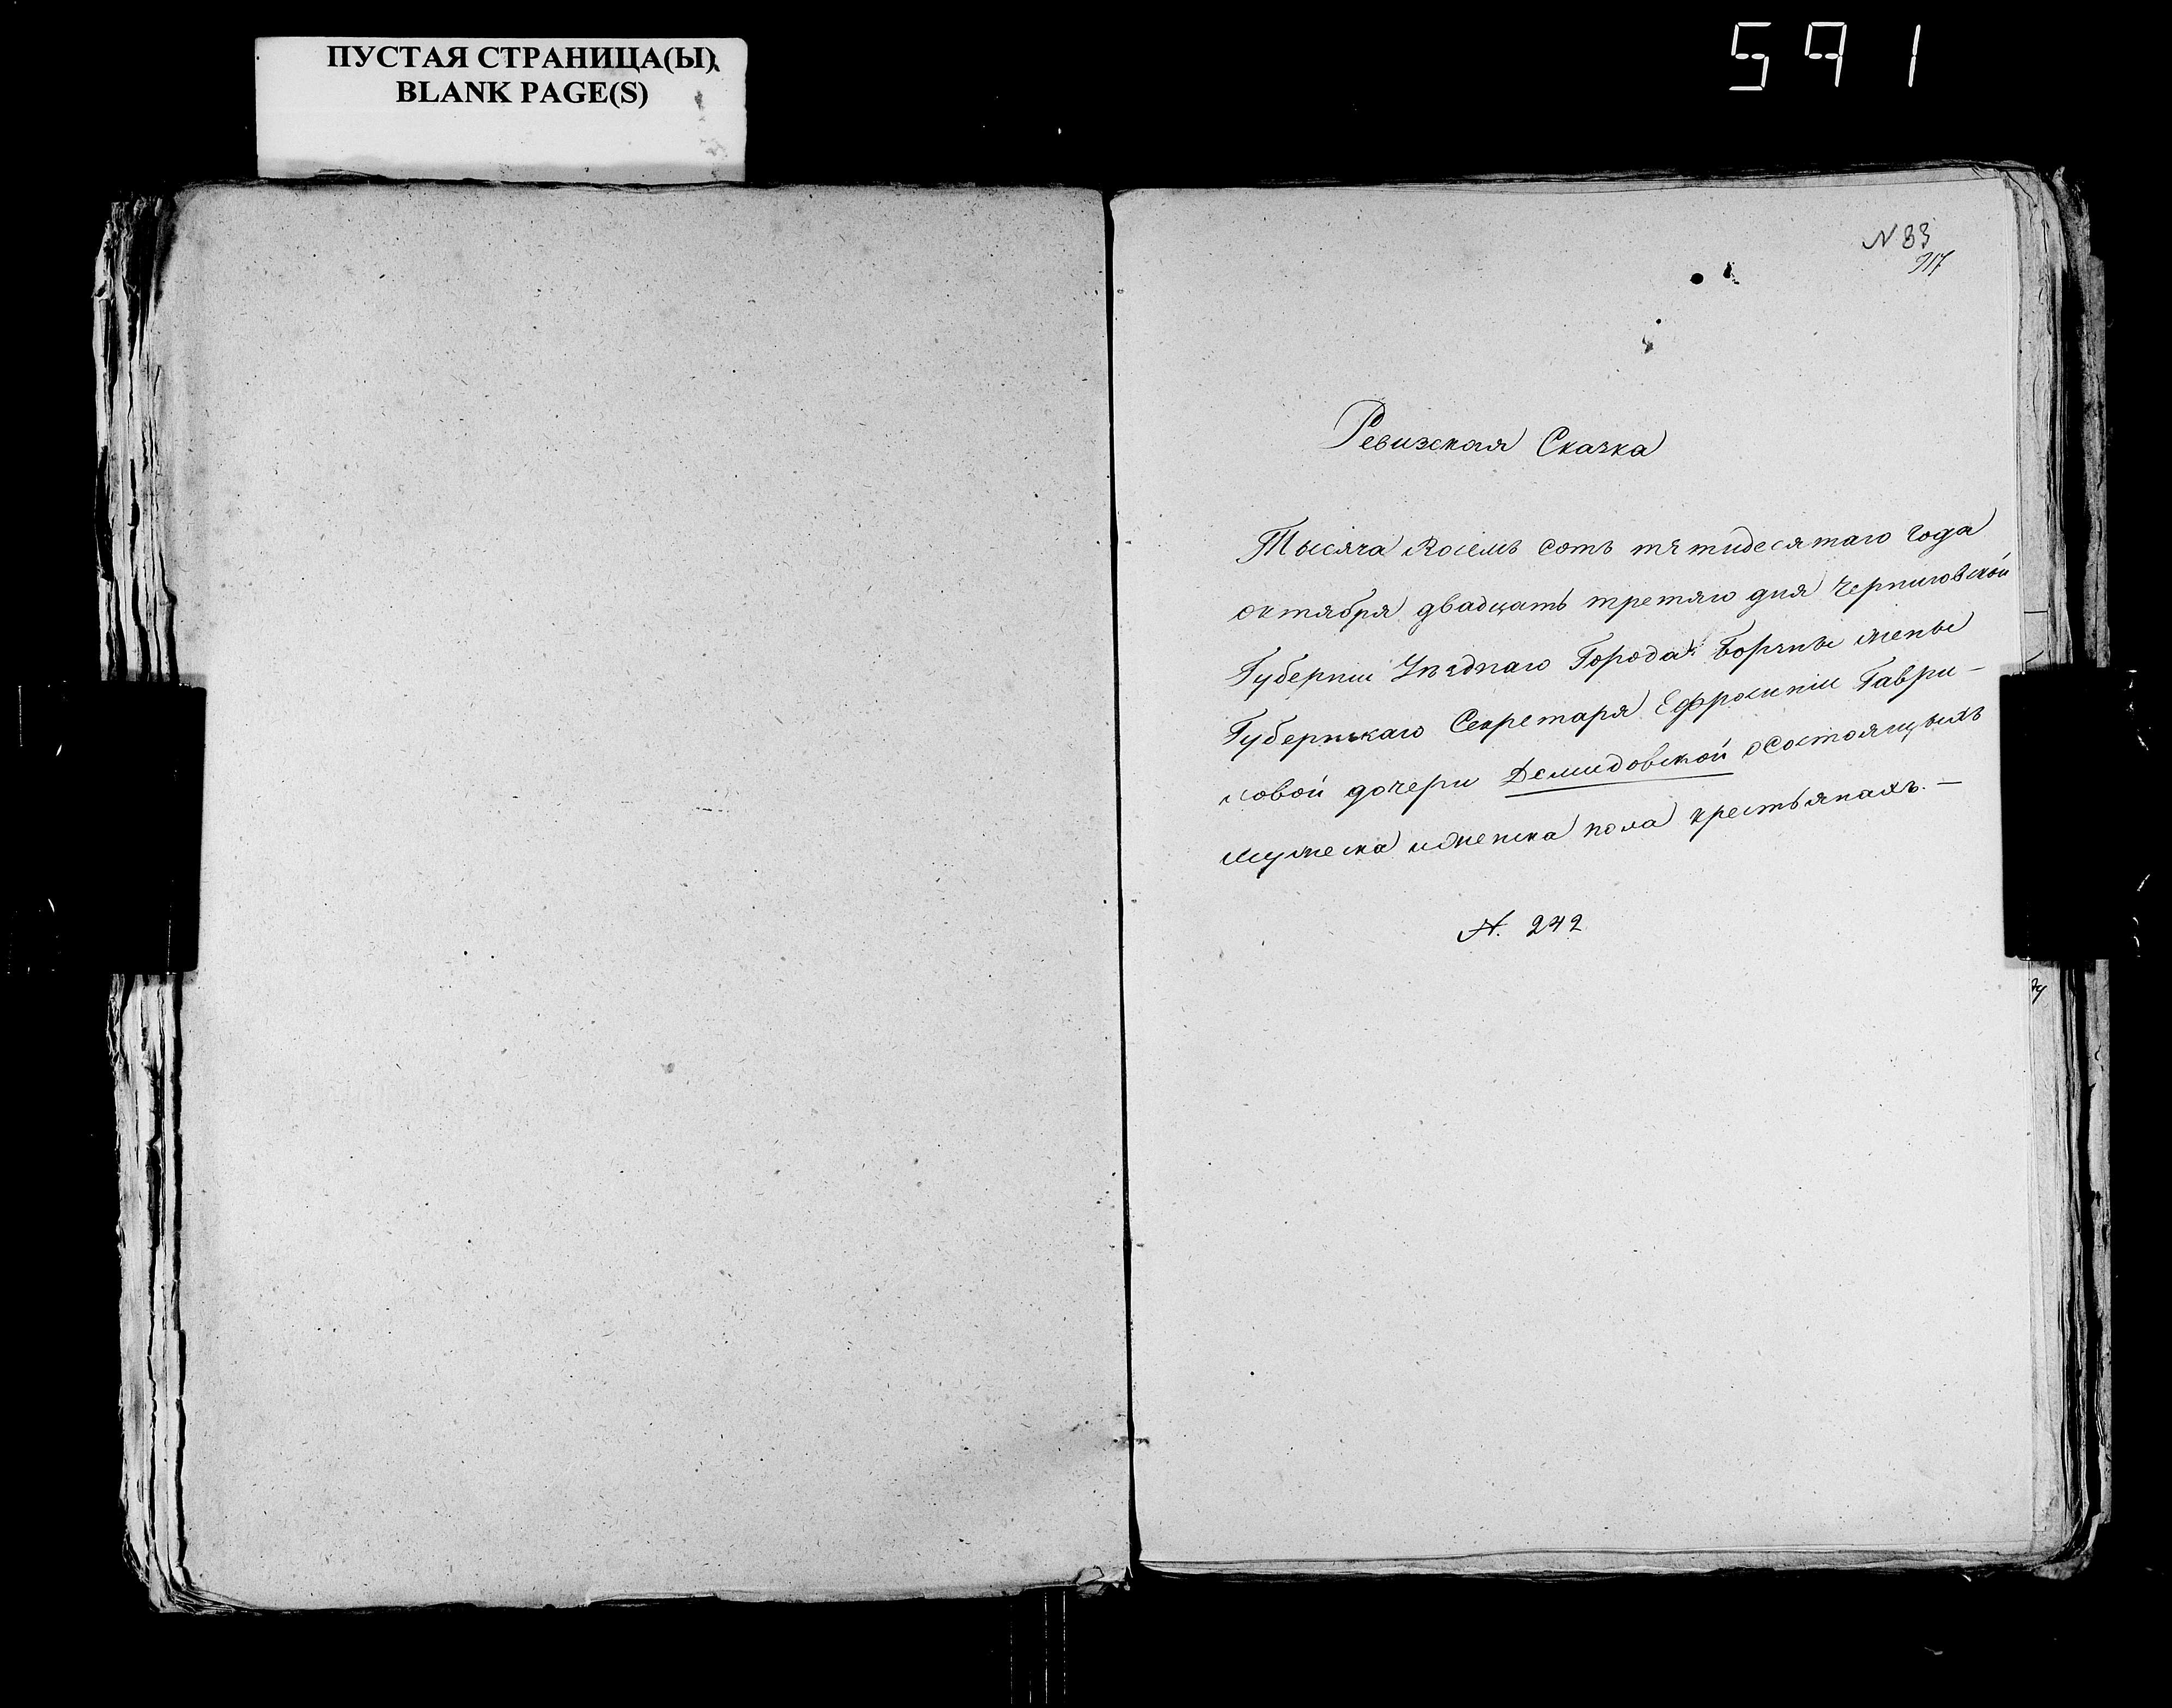 ПУСТАЯ СТРАНИЦА(Ы)
BLANK PAGE(S)
591
N 83
917
Ревизская Сказка
Тысяча восемъ сотъ пятидесятаго года
октября двадцать третяго дня Черниговской
Губерніи Уѣзднаго Города Борзны жены
Губернскаго Секретаря Ефросиніи Гаври-
ловой дочери Демидовской осостоящыхъ
мужеска иженска пола крестьянахъ. —
N. 242